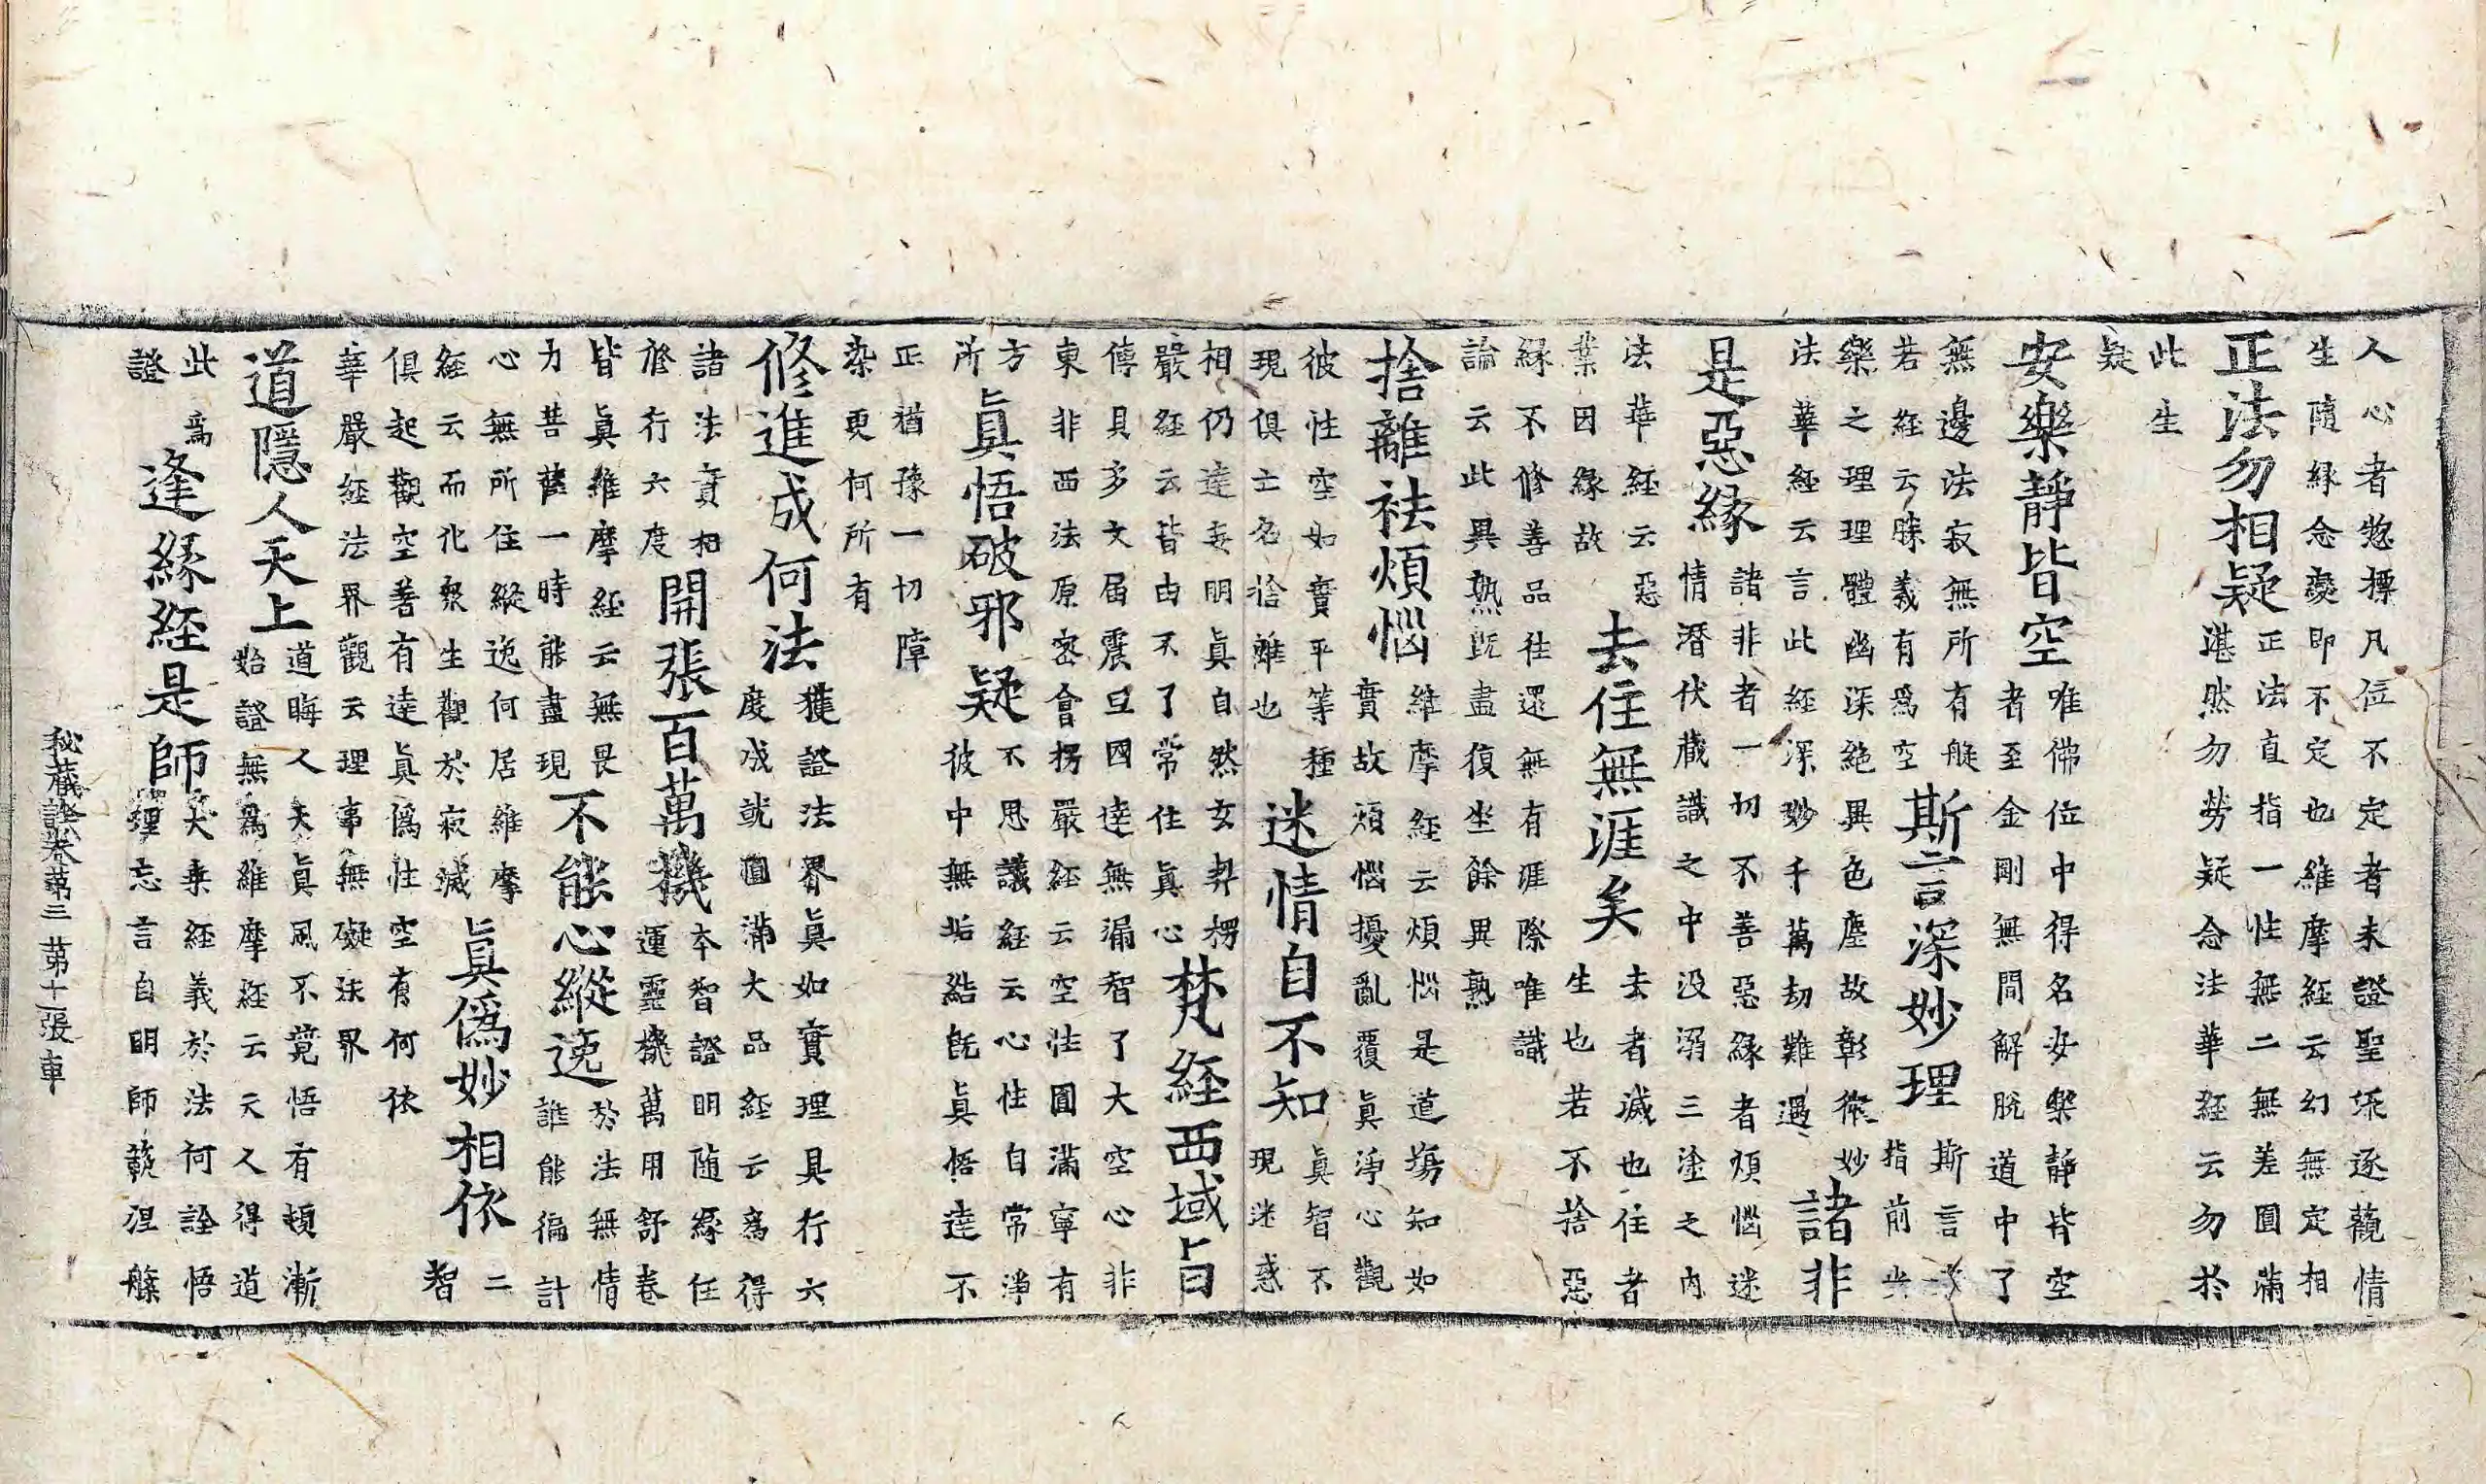 人心者惣標凡位不定者未證聖源逐觀情
生隨緣念變即不定也維摩經云幻無定相
正法勿相疑
正法直指一性無二無差圓滿
湛然勿勞疑念法華經云勿於
此生
疑
安樂靜皆空
唯佛位中得名安樂靜皆空
者至金剛無間解脫道中了
無邊法寂無所有艇
若經云勝義有爲空
斯言深妙理
斯言
指前此
樂之理理體幽深絕異色塵故彰微妙
法華經云言此經深妙千萬劫難遇
諸非
是惡緣
諸非者一切不善惡緣者煩惱迷
情潛伏藏識之中沒溺三塗之內
法華經云惡
業因緣故
去住無涯矣
去者滅也住者
生也若不捨惡
緣不修善品往還無有涯際唯識
論云此異熟旣盡復坐餘異熟
捨離祛煩惱
維摩經云煩惱是道場知如
實故煩惱擾亂覆眞淨心觀
彼性空如實平等種
現俱亡名捨離也
迷情自不知
眞智不
現迷惑
相仍達妄明眞自然安弃楞
嚴經云皆由不了常住眞心
梵經西域旨
傳貝多文屆震旦國達無漏智了大空心非
東非西法原密會楞嚴經云空性圓滿寧有
方
所
眞悟破邪疑
不思議經云心性自常淨
彼中無垢結旣眞悟達不
正猶豫一切障
染更何所有
修進成何法
獲證法界眞如實理具行六
度成就圓滿大品經云爲得
諸法實相
修行六度
開張百萬機
本智證明隨緣任
運靈機萬用舒卷
皆眞維摩經云無畏
力菩薩一時能盡現
不能心縱逸
於法無情
誰能徧計
心無所住縱逸何居維摩
經云而化眾生觀於寂滅
眞僞妙相依
二
智
俱起觀空善有達眞僞性空有何依
華嚴經法界觀云理事無礙法界
道隱人天上
道晦人天眞風不竟悟有頓漸
始證無爲維摩經云天人得道
此爲
證
逢緣經是師
大乘經義於法何詮悟
理忘言自明師範涅槃
秘藏詮卷第三 第十二張 車